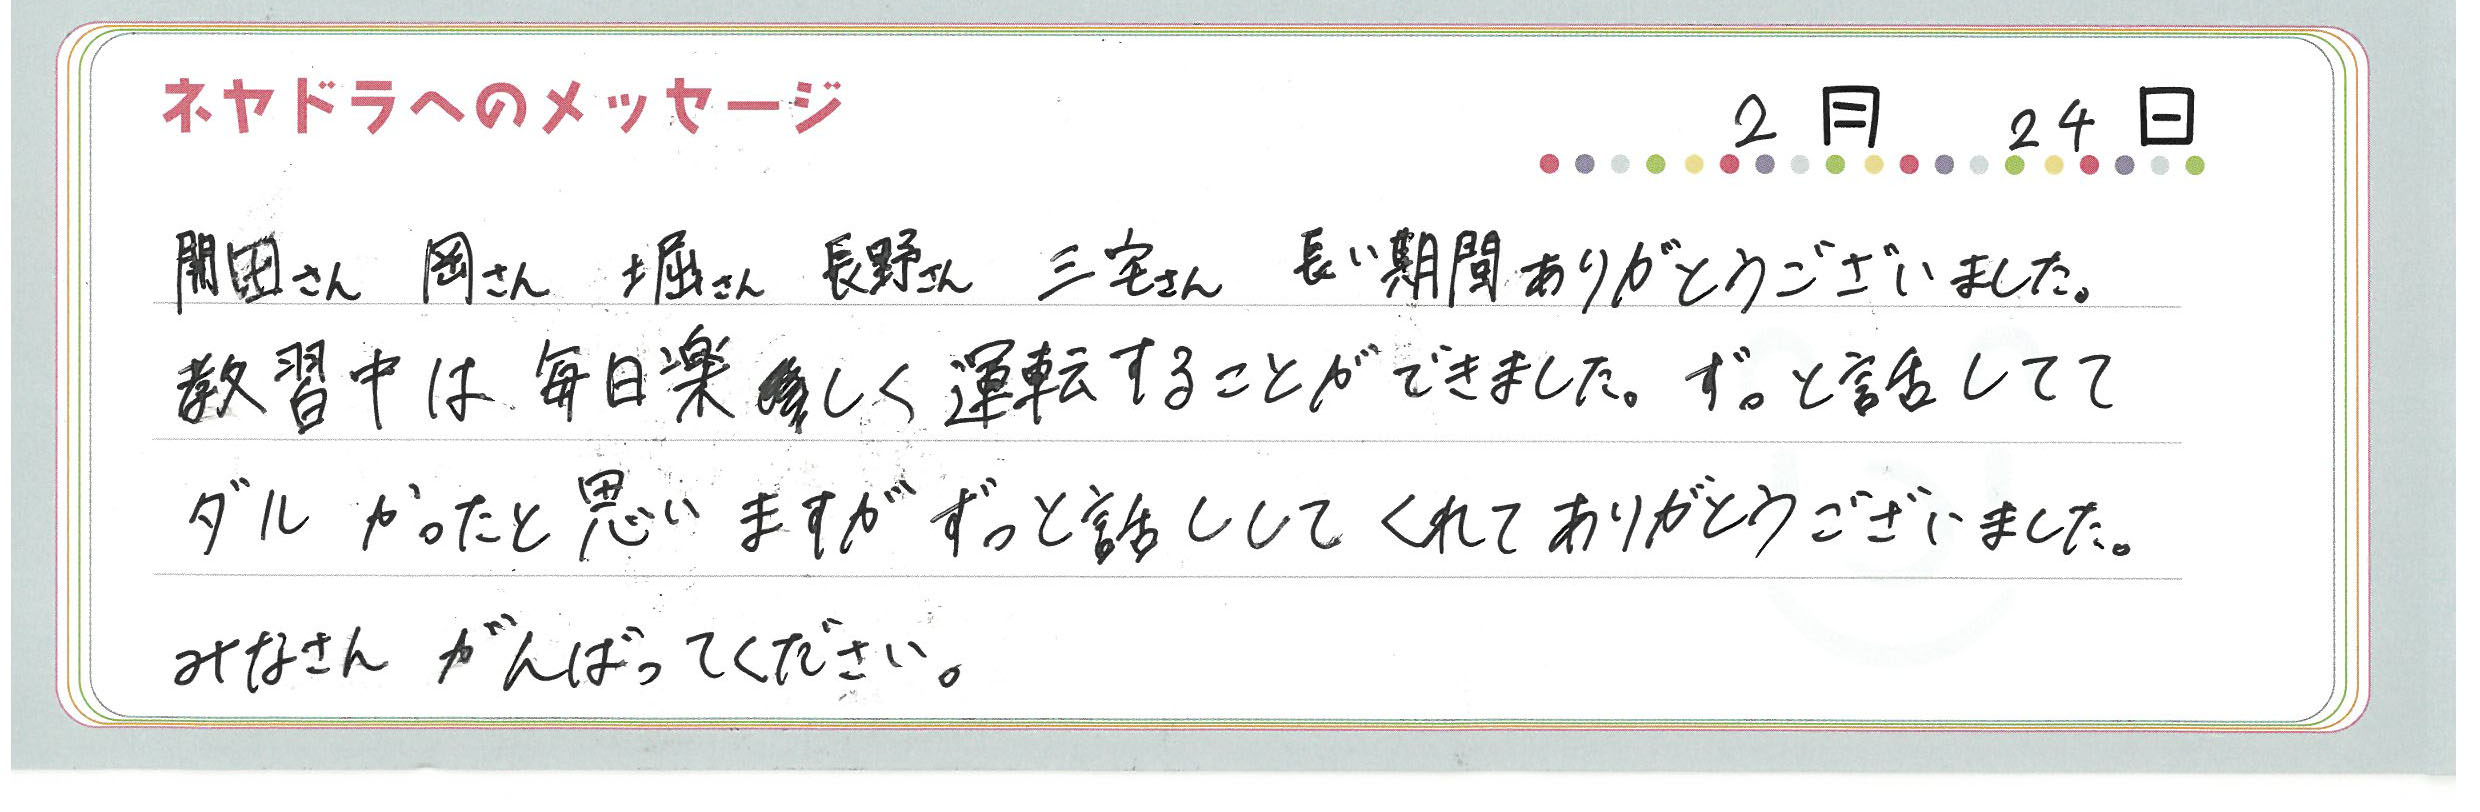 ネヤドラへのメッセージ
2月 24日
開田さん 岡さん 堀さん 長野さん 三宅さん 長い期間ありがとうございました。
教習中は毎日楽しく運転することができました。ずっと話してて
ダルかったと思いますがずっと話ししてくれてありがとうございました。
みなさん がんばってください。